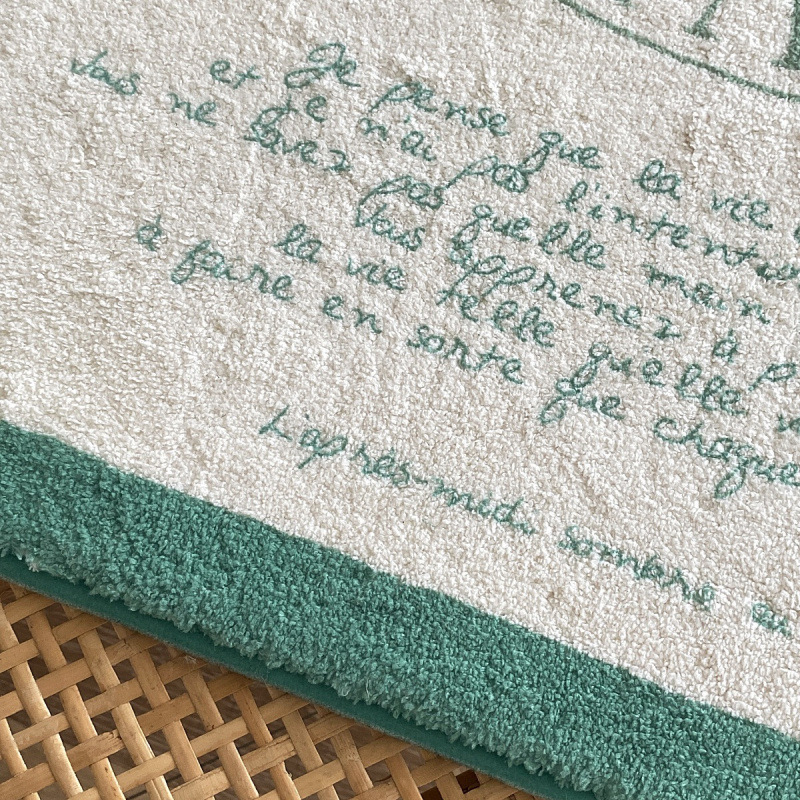 Je pense que la vie
et je n'ai pas l'intent
vous ne savez pas quelle main
Vous apprenez à p
la vie telle quelle
à faire en sorte que chaque
L'après-midi sombre en